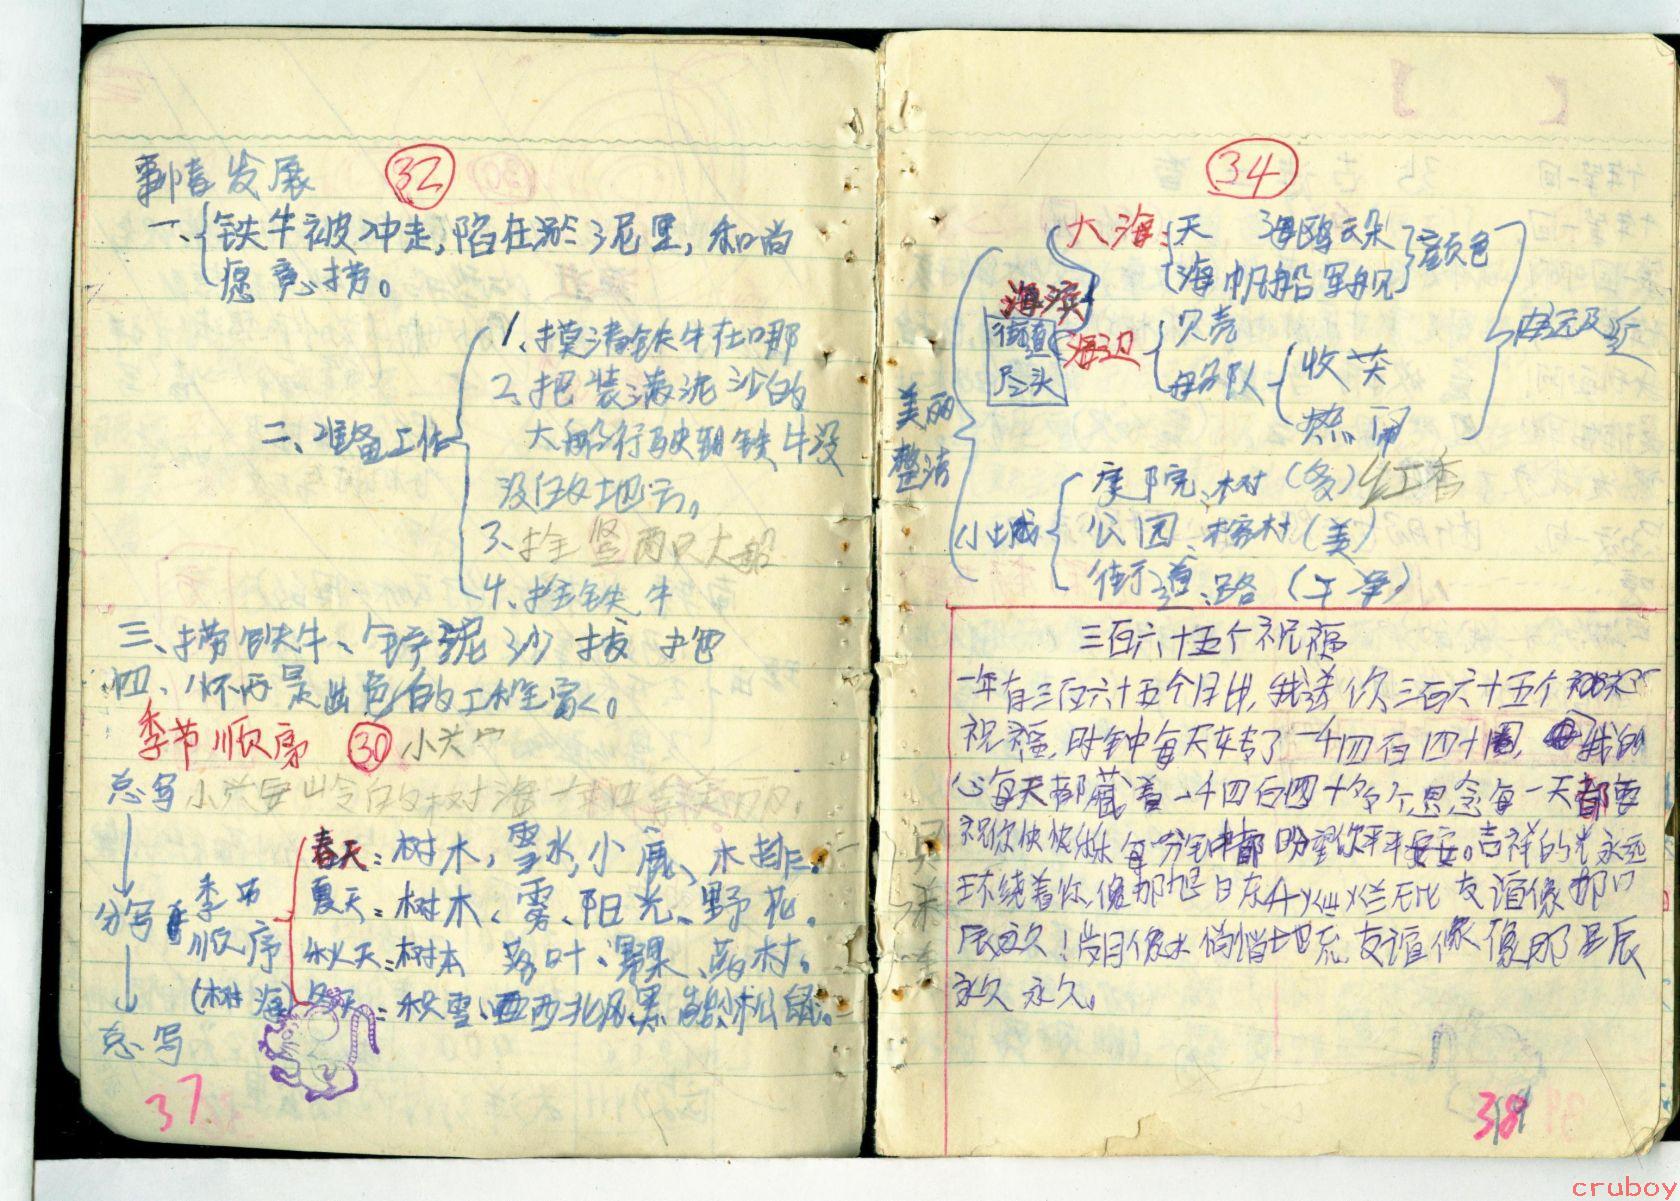 事情发展 32
一、铁牛被冲走,陷在淤泥里,和尚
愿意捞。
二、准备工作
1、摸清铁牛在哪
2、把装满泥沙的
大船行驶朝铁牛没
没的地方。
3、拴竖两只大船
4、拴铁牛
三、捞铁牛、铲泥沙 拔 拖
四、怀丙是出色的工程家。
季节顺序 30 小兴安
总写 小兴安岭的树海一年四季美丽,
分写 季节顺序(树海)
春天:树木,雪水,小鹿、木排。
夏天:树木、雾、阳光、野花。
秋天:树木 落叶、果、蘑
冬天:积雪、西北风、黑 松鼠。
总写
37
34
美丽 整洁
海滨 街道尽头
大海:天 海鸥云朵
海 帆船军舰 颜色
海边 贝壳
船队 收 笑
热闹
由远及近
小城
庭院:树(多)红香
公园:榕树(美)
街道:路(干净)
三百六十五个祝福
一年有三百六十五个日出,我送你三百六十五个
祝福,时钟每天转了一千四百四十圈,我的
心每天都藏着一千四百四十多个思念每一天都要
祝你快快乐乐 每一分钟都盼望你平平安安。吉祥的光永远
环绕着你,像那旭日东升灿烂无比 友谊像那日
辰永久!岁月像水悄悄地流 友谊像像那星辰
永久 永久。
38
cruboy